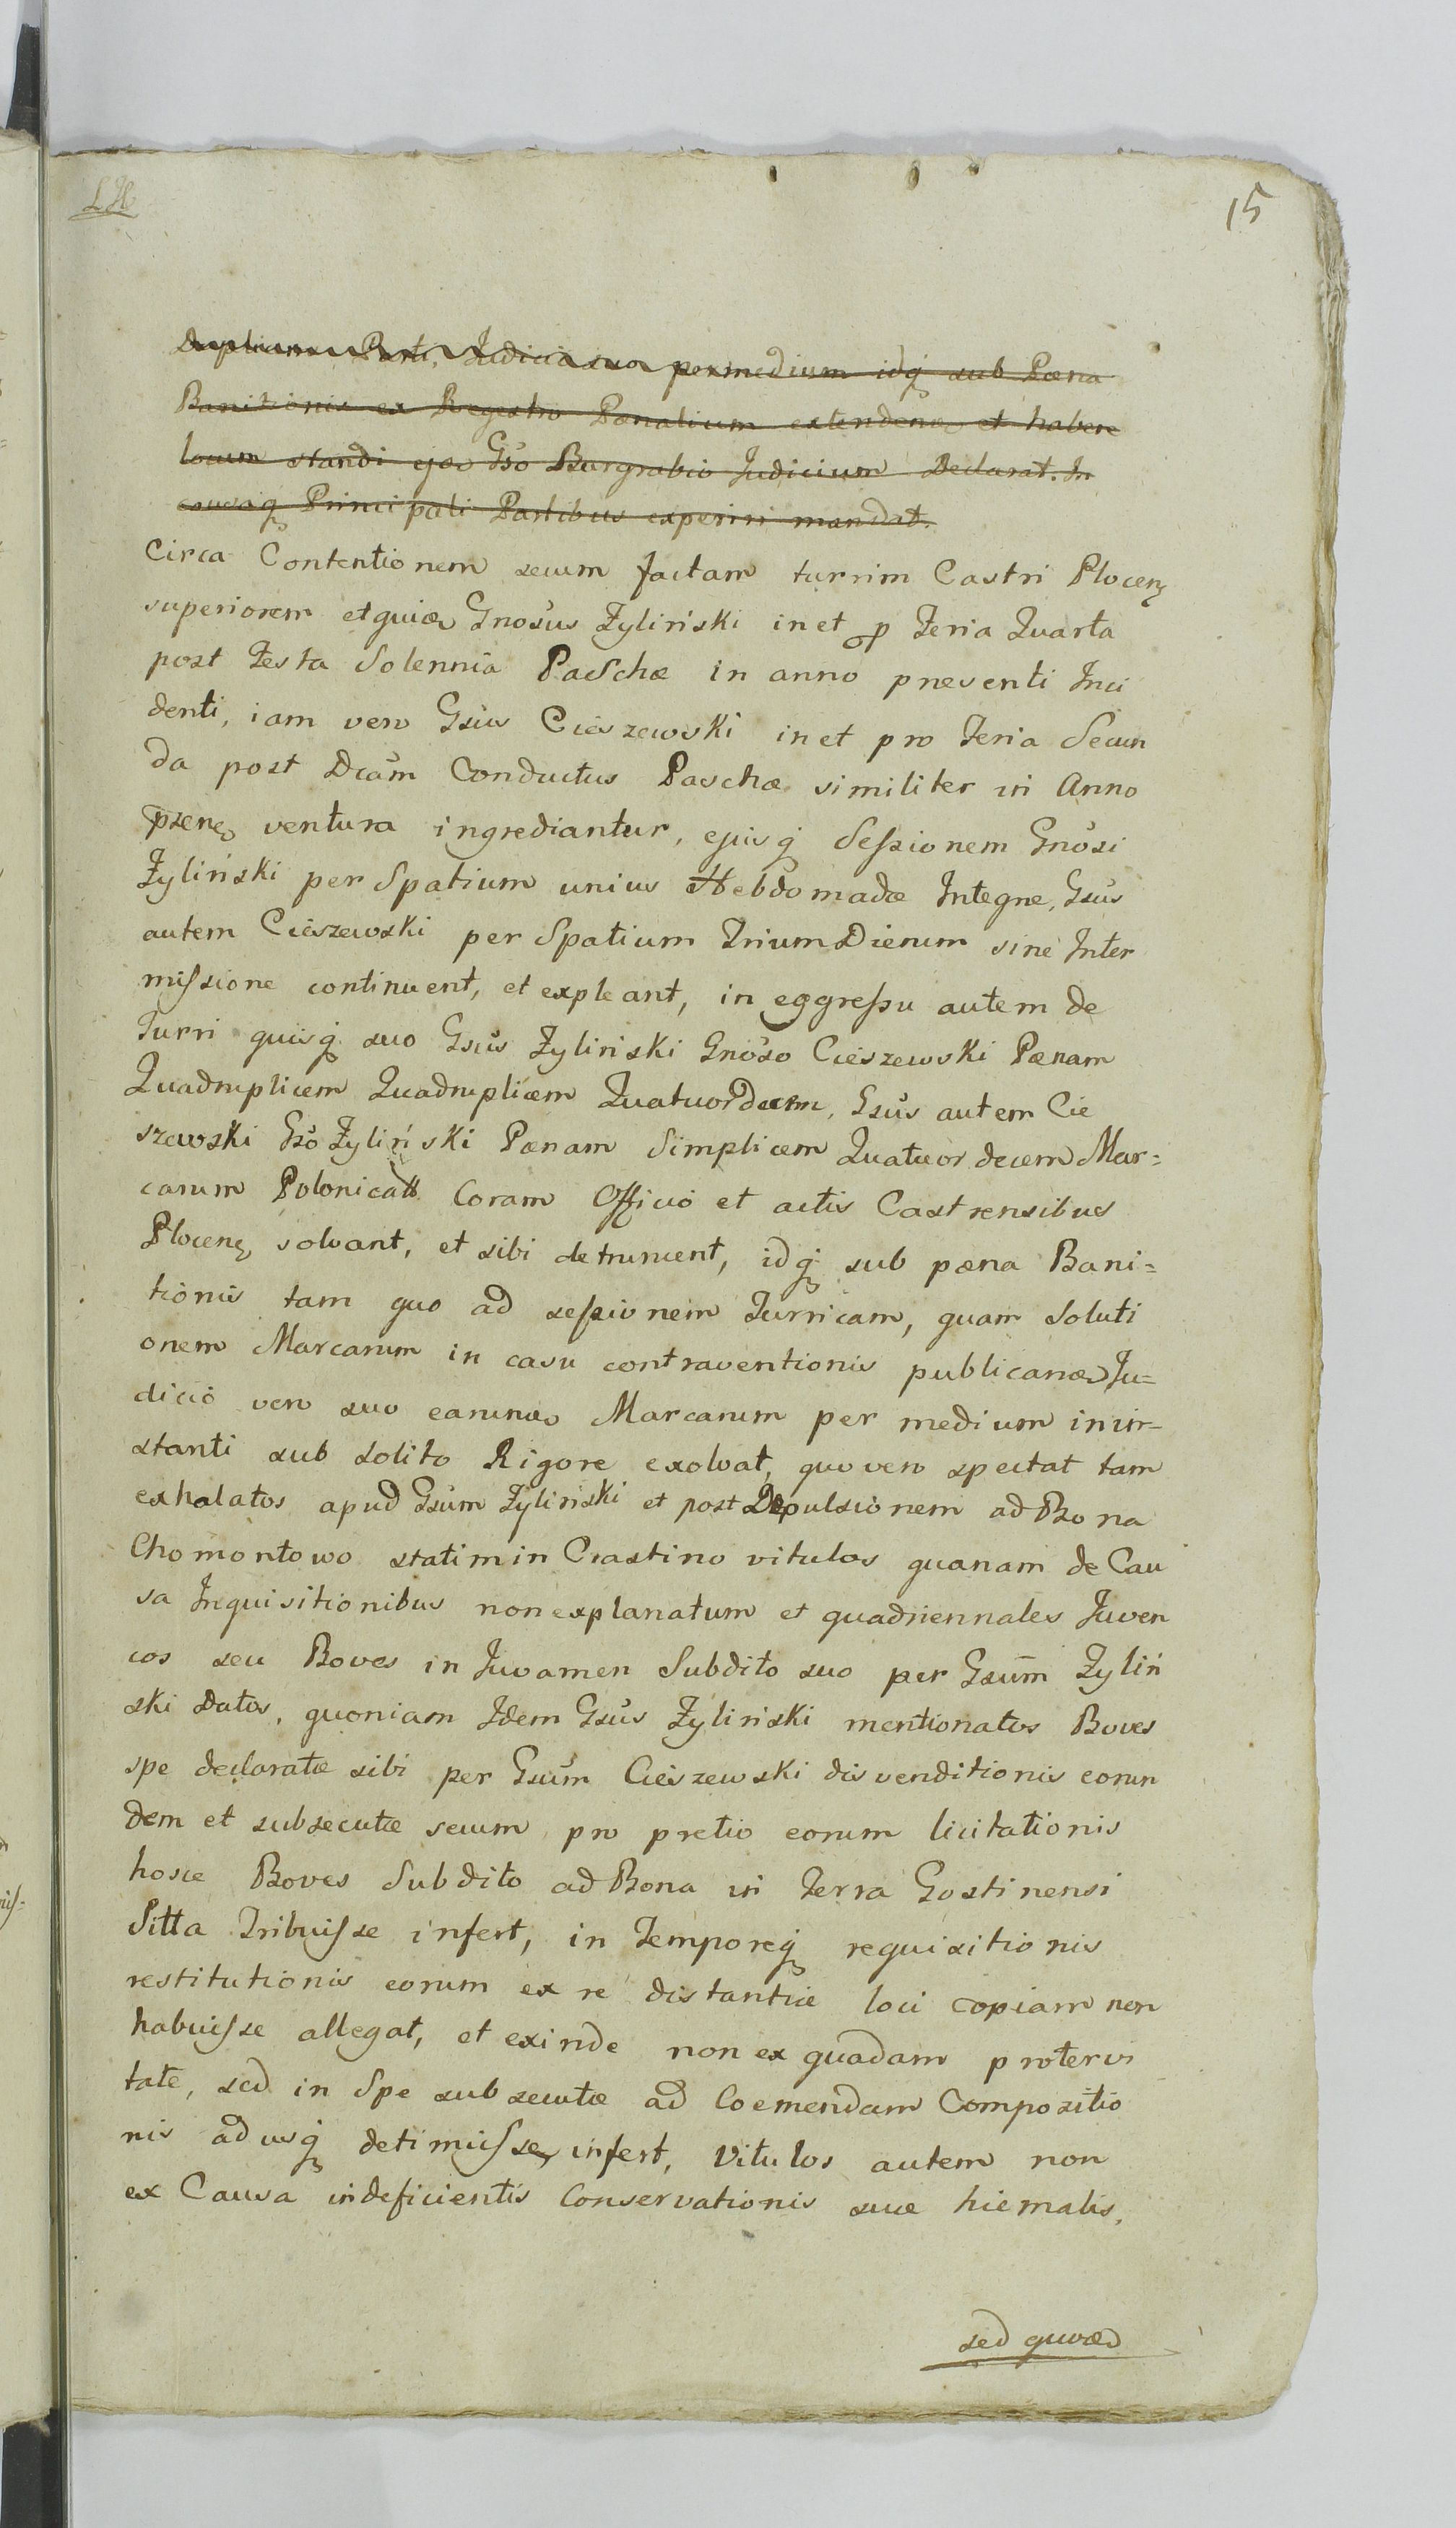 LH
15
Duplicem Parti, Judicio suo per medium idq sub Pæna
Banitionis ex Regestro Pænalium extendenæ et habere
locum standi ejas Gso Burgrabio Judicium Declarat. In
causaq Principali Partibus experiri mandat.
Circa Contentionem secum factam turrim Castri Plocen
superiorem et quiæ Gnosus Zyliński in et p Feria Quarta
post Festa Solennia Paschæ in anno præsenti Inci
denti, iam vero Gsus Cieszewski in et pro Feria Secun
da post Dcam Conductus Paschæ similiter in Anno
præn ventura ingrediantur, ejusq Sessionem Gnosi
Zyliński per Spatium unius Hebdomadæ Integræ, Gsus
autem Cieszewski per Spatium Trium Dierum sine Inter
missione continuent, et expleant, in eggressu autem de
Turri quisq suo Gsus Zyliński Gnoso Cieszewski Pænam
Quadruplicem Quadruplicem Quatuordecim, Gsus autem Cie
szewski Gso Zyliński Pænam Simplicem Quatuor decem Mar=
carum Polonicall Coram Officio et actis Castrensibus
Plocen, solvant, et sibi detrument, idq sub pæna Bani=
tionis tam quo ad sessionem Turricam, quam Soluti
onem Marcarum in casu contraventionis publicanæ Ju=
dicio vero suo earum Marcarum per medium in in-
stanti sub Solito Rigore exolvat, quo vero spectat tam
exhalatos apud Gsum Zyliński et post Depulsionem ad Bona
Chomontowo statim in Crastino vitulos quanam de Cau
sa Inquisitionibus non explanatum et quadriennales Juven
cos seu Boves in Juvamen Subdito suo per Gsum Zyliń
ski Datos, quoniam Idem Gsus Zyliński mentionatos Boves
spe declaratæ sibi per Gsum Cieszewski disvenditionis eorun
dem et subsecutæ secum pro pretio eorum licitationis
hosce Boves Subdito ad Bona in Terra Gostinensi
Sitta Tribuisse infert, in Temporeq requisitionis
restitutionis eorum ex re distantiæ loci copiam non
habuisse allegat, et exinde non ex quadam protervi
tate, sed in Spe subsecutæ ad Coemendam Compositio
nis ad usq detinuisse, infert, Vitulos autem non
ex Causa indeficientis Conservationis suæ hiemalis,
sed quæ